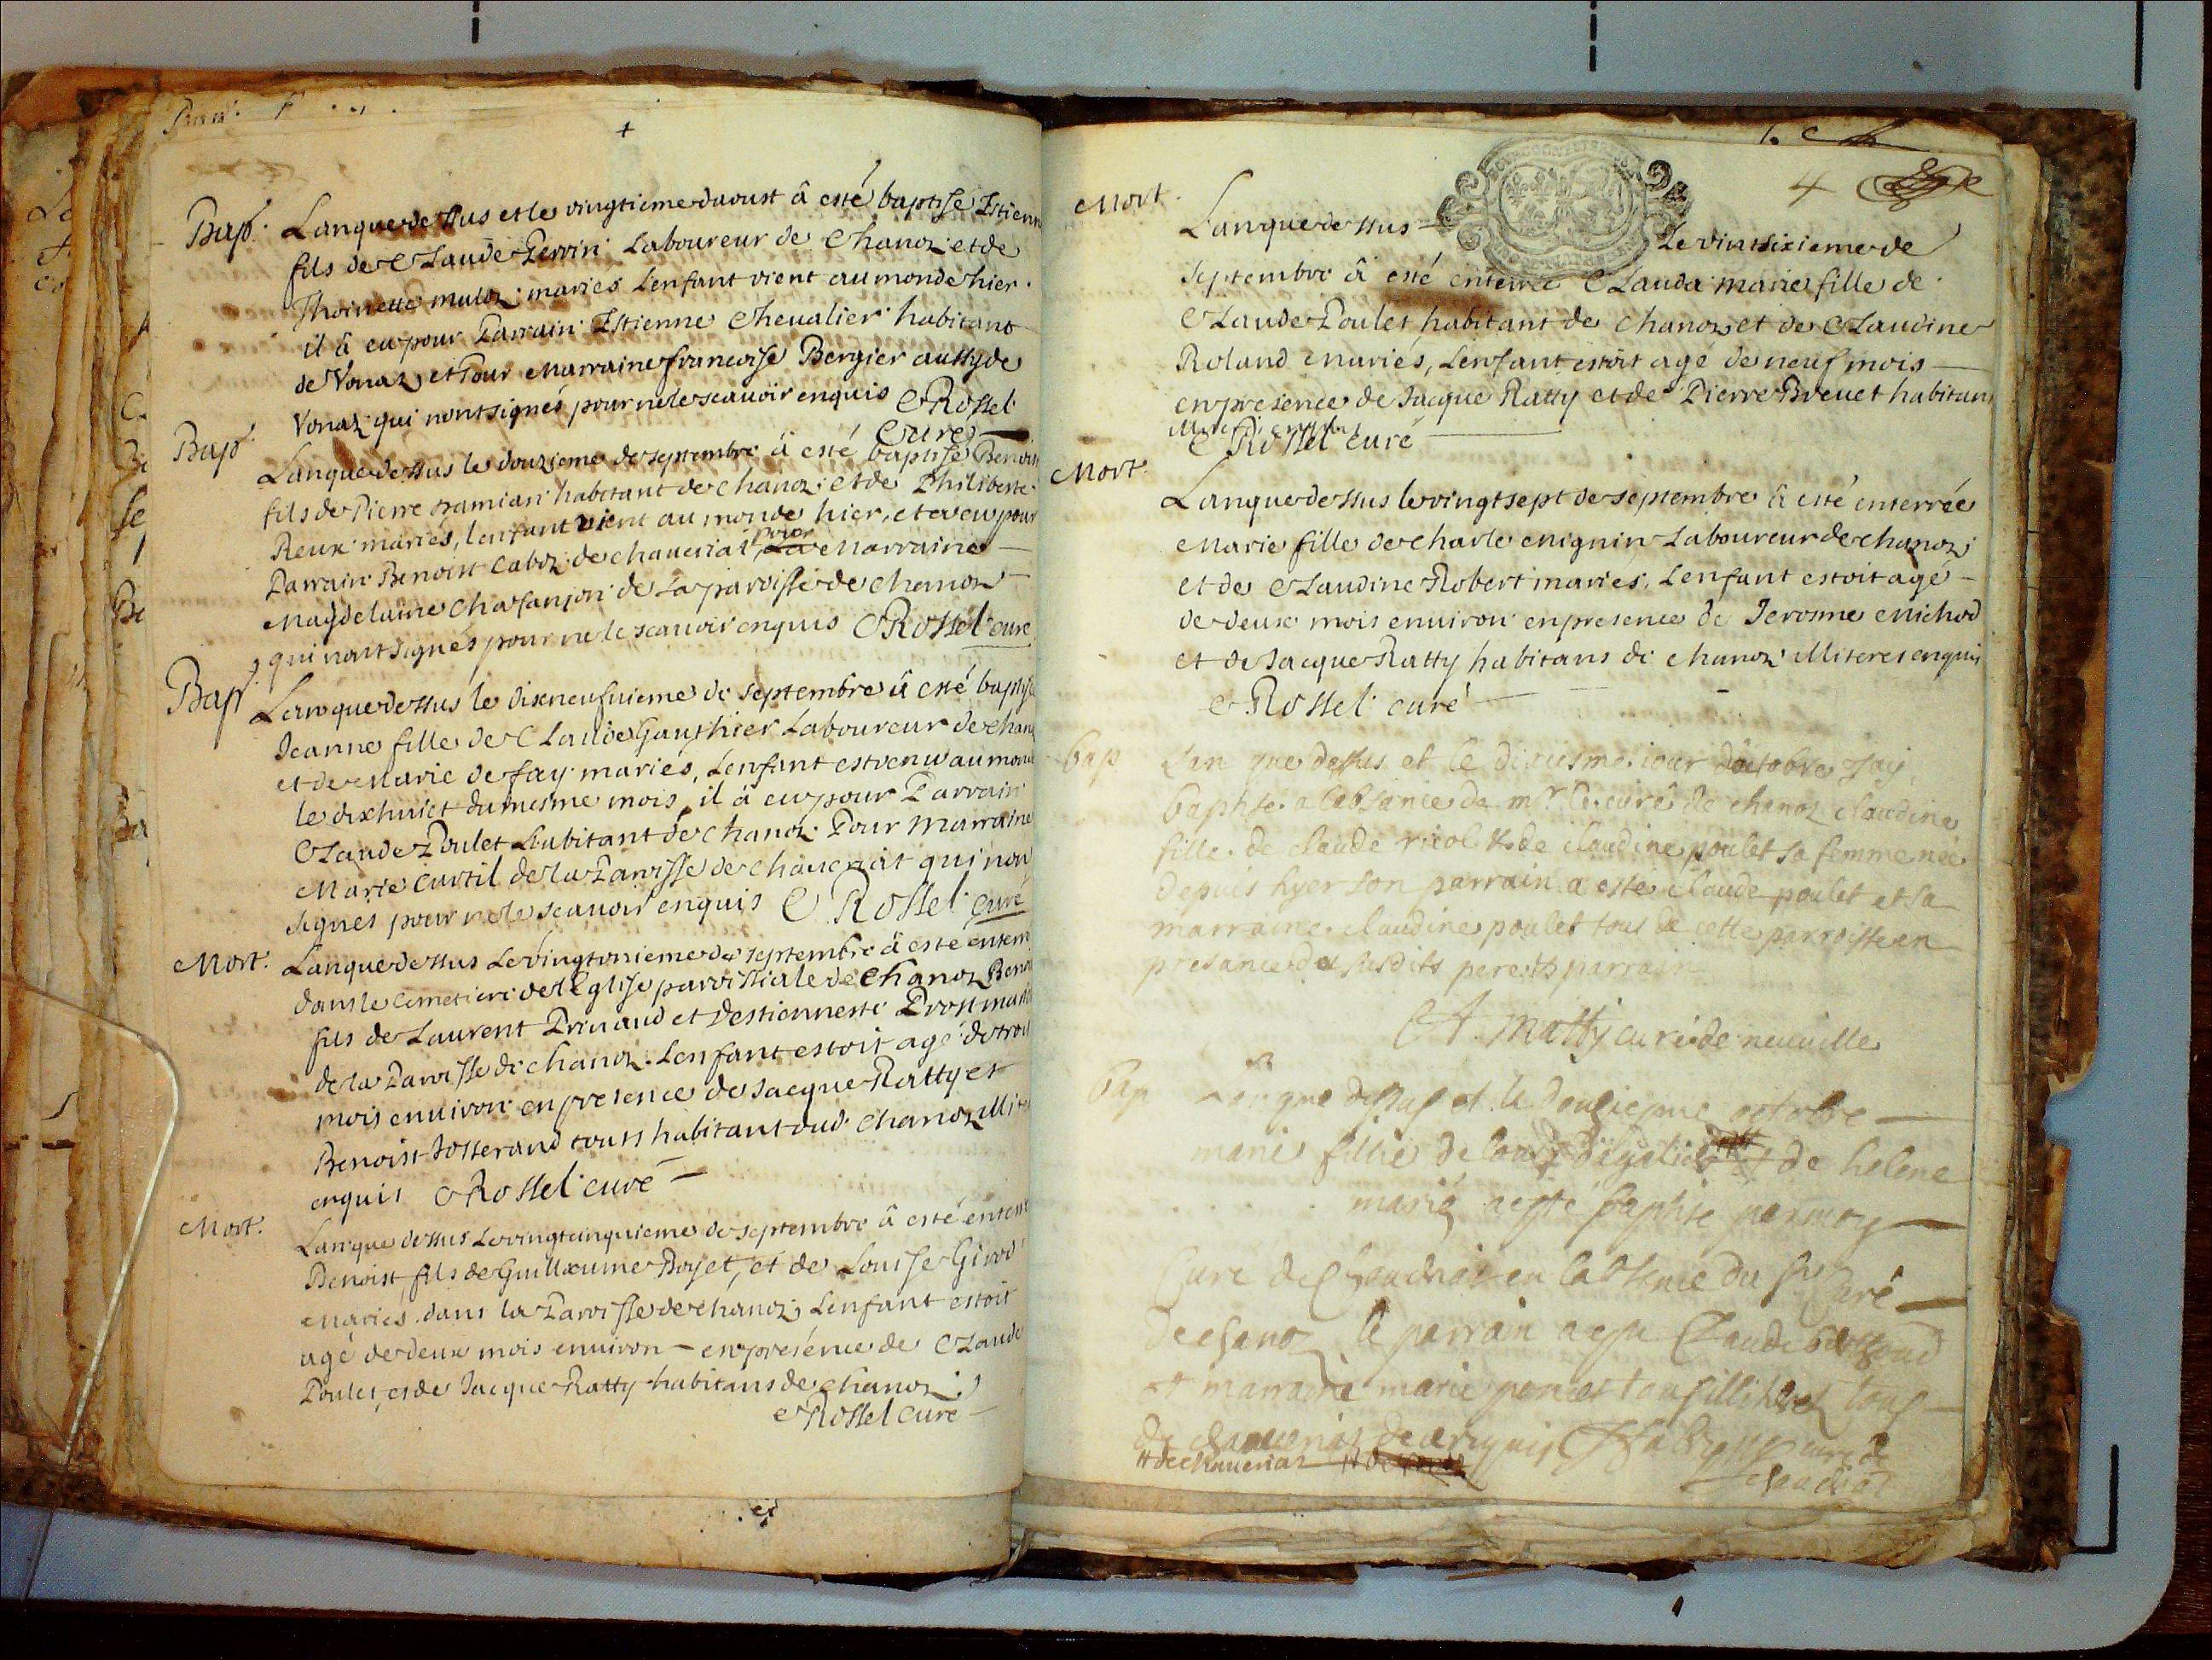 Bap. Lan que dessus et le vingtieme daoust â esté baptisé Estienn
fils de Claude Perrin Laboureur de Chanoz et de
Thoinette muloz mariés lenfant vient au monde hier.
il â eu pour Parrain Estienne Chevalier habitant
de Vonaz et Pour Marraine francoise Bergier aussy de
Vonaz qui nont signés pour ne le scauoir enquis C Rossel
Curé
Bap. Lan que dessus le douzieme de septembre â esté baptisé Benoist
fils de Pierre pamian habitant de Chanoz et de Philiberte
Reux mariés, lenfant vient au monde hier, et a eu pour
Parrain Benoist Caboz de chaueriat, pour Marraine
Magdelaine Chafanjon de la paroisse de Chanoz
qui nont signés pour ne le scauoir enquis C Rossel curé
Bap. Lan que dessus le dixneufuieme de septembre â esté baptisé
Jeanne fille de Claude Gauthier Laboureur de chano
et de Marie de fay mariés, Lenfant est venu au mond
le dixhuict du mesme mois, il â eu pour Parrain
Claude Poulet habitant de Chanoz Pour Marraine
Marie Curtil de la Paroisse de Chaueriat qui non
signés pour ne le scauoir enquis C Rossel Curé
Mort. Lan que dessus Le vingtonieme de septembre â esté enterr
dans le Cimetiere de l'Eglise paroissiale de Chanoz Benoi
fils de Laurent Prinaud et destiennette Prost marié
de la Paroisse de chanoz. Lenfant estoit agé de trois
mois enuiron en presence de Jacque Ratty et
Benoist Josserand touts habitant dud. Chanoz Illite
enquis C Rossel curé
Mort. Lan que dessus Le vingtcinquieme de septembre â esté enterr
Benoist fils de Guillaume Boyet, et de Louise Girod
Mariés dans la Paroisse de chanoz, Lenfant estoit
agé de deux mois enuiron en présence de Claude
Poulet, et de Jacque Ratty habitans de chanoz
C Rossel curé
4
Mort. Lan que dessus Le vintsixieme de
septembre â esté enterrée Clauda marie fille de
Claude Poulet habitant de Chanoz et de Claudine
Roland Mariés, Lenfant estoit agé de neuf mois
en presence de Jacque Ratty et de Pierre Breuet habitans
C Rossel curé
Mort. Lan que dessus le vingtsept de septembre â esté enterrée
Marie fille de Charle Mignin Laboureur de chanoz
et de Claudine Robert mariés, Lenfant estoit agé
de deux mois enuiron en presence de Jerosme Michod
et de Jacque Ratty habitans de chanoz Illiteres enquis
C Rossel curé
bap Lan que dessus et le dixiesme iour doctobre Jay
baptise a labsance de mr. le curé de chanoz claudine
fille de claude ricol & de claudine poulet sa femme née
depuis hyer son parrain a esté claude poulet et sa
marraine claudine poulet tous de cette parroisse en
presance des susdits pere & parrain
A. Matty curé de neuuille
bap Lan que dessus et le douzieme octobre
marie fillie de et de helene
marié a esté baptise par moy
Curé de en labsence du sr Curé
de chano le parrain a esté Claude
et marraine marie tous
de chaueriat de ce enquis curé de
# de chaueriat